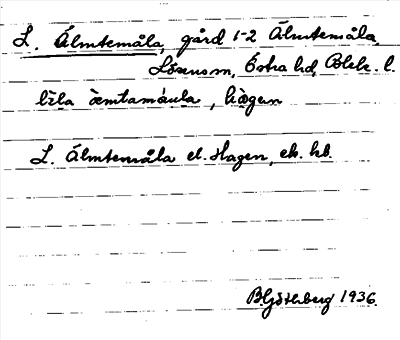 L. Älmtemåla, gård 1-2 Älmtemåla,
Lösens sn, Östra hd, Blek. l.
lìla æ̀mtamåula, hàgen
L. Älmtemåla el. Hagen, ek. kb.
B. Göthberg 1936.